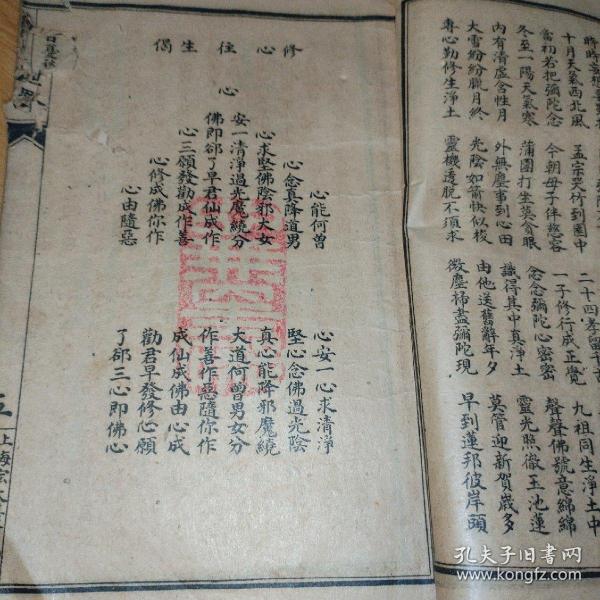 十月天氣西北風　孟宗哭竹到園中　二十四孝留千古
當初若把彌陀念　今朝母子伴慈容　一子修行成正覺　九祖同生淨土中
冬至一陽天氣寒　蒲團打坐莫貪眠　念念彌陀心密密　聲聲佛號意綿綿
內有清虛含性月　外無塵事到心田　識得其中真淨土　靈光照徹玉池蓮
大雪紛紛臘月終　光陰如箭快似梭　由他送舊辭年夕　莫管迎新賀歲多
專心勤修生淨土　靈機透脫不須求　微塵掃盡彌陀現　早到蓮邦彼岸頭
修心住生偈
心能何曾
心念真降道男
心求堅佛陰邪大女
安一清淨過光魔繞分
心
佛即郤了早君仙成作
心三願發勸成作善
心修成佛你作
心由隨惡
心安一心求清淨
堅心念佛過光陰
真心能降邪魔繞
大道何曾男女分
作善作惡隨你作
成仙成佛由心成
勸君早發修心願
了郤三心即佛心
五
上海宏大善
孔夫子旧书网
www.kongfz.com